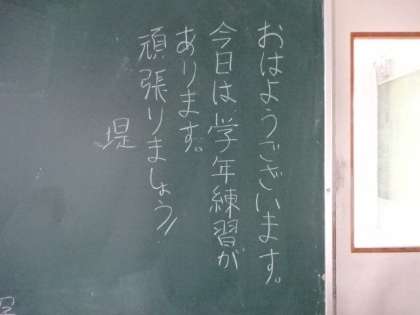 おはようございます。
今日は学年練習が
あります。
頑張りましょう!!
堤